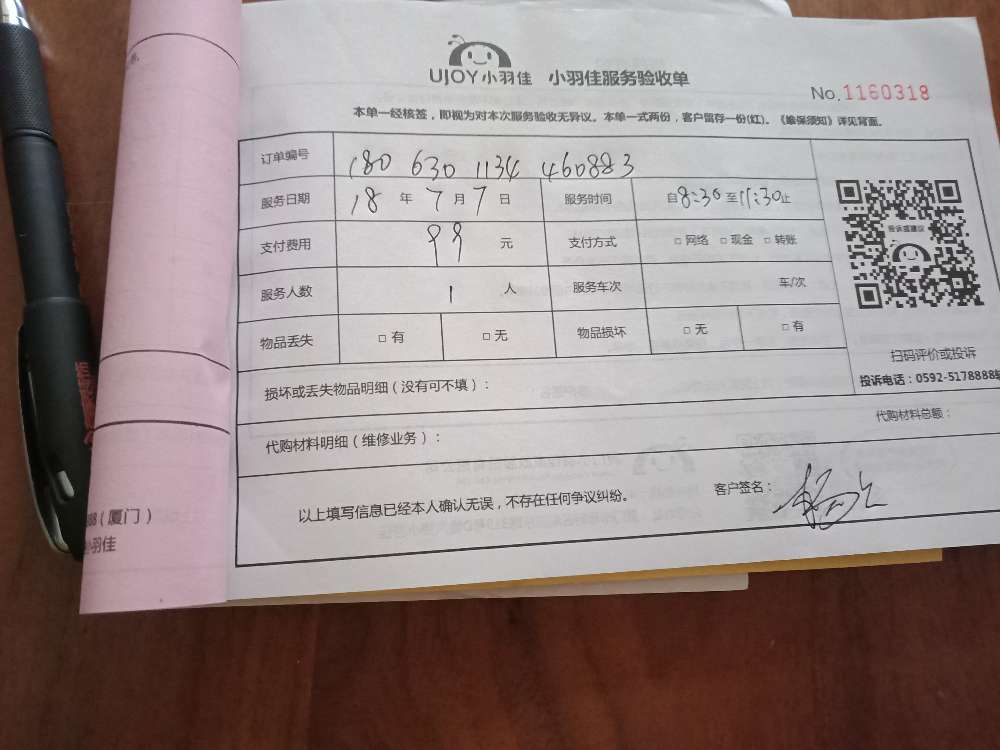 UJOY小羽佳 小羽佳服务验收单
No. 1160318
本单一经核签，即视为对本次服务验收无异议。本单一式两份，客户留存一份(红)。《维保须知》详见背面。
订单编号 180 630 1134 460883
服务日期 18 年 7 月 7 日 服务时间 自8:30至11:30止
支付费用 99 元 支付方式 □ 网络 □ 现金 □ 转账
服务人数 1 人 服务车次 车/次
物品丢失 □ 有 □ 无 物品损坏 □ 无 □ 有
投诉或建议
扫码评价或投诉
投诉电话：0592-5178888转
损坏或丢失物品明细（没有可不填）：
代购材料明细（维修业务）： 代购材料总额：
以上填写信息已经本人确认无误，不存在任何争议纠纷。 客户签名：
（厦门）
小羽佳